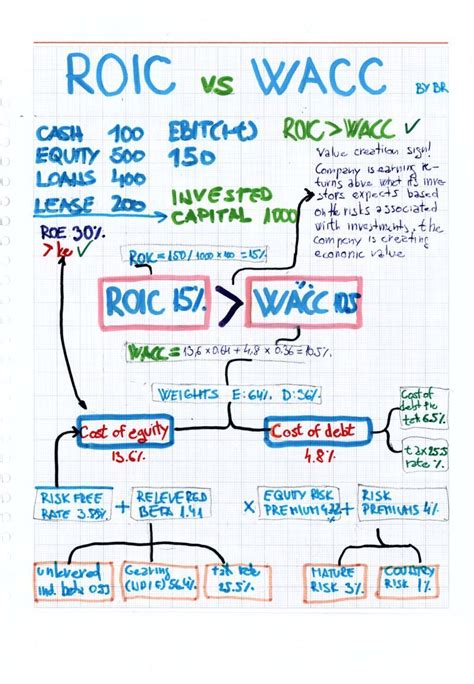 ROIC vs WACC
BY BR
CASH 100
EQUITY 500
LOANS 400
LEASE 200
EBIT(1-t)
150
INVESTED
CAPITAL 1000
ROIC > WACC ✓
Value creation sign!
Company is earning re-
turns above what its inve-
stors expects based
on the risks associated
with investments, the
company is creating
economic value
ROE 30%
> ke ✓
ROIC = 150/1000 × 100 = 15%
ROIC 15% > WACC 10,5
WACC = 13,6 × 0.64 + 4,8 × 0.36 = 10.5%
WEIGHTS E: 64% D: 36%
Cost of equity
13.6%
Cost of debt
4.8%
Cost of
6.5%
tax 25.5
rate %
RISK FREE
RATE
+
RELEVERED
BETA 1.41
×
EQUITY RISK
PREMIUM
+
RISK
PREMIUMS 4%
Unlevered
ind. beta
Gearing
56.4%
tax rate
25.5%
MATURE
RISK 3%
COUNTRY
RISK 1%